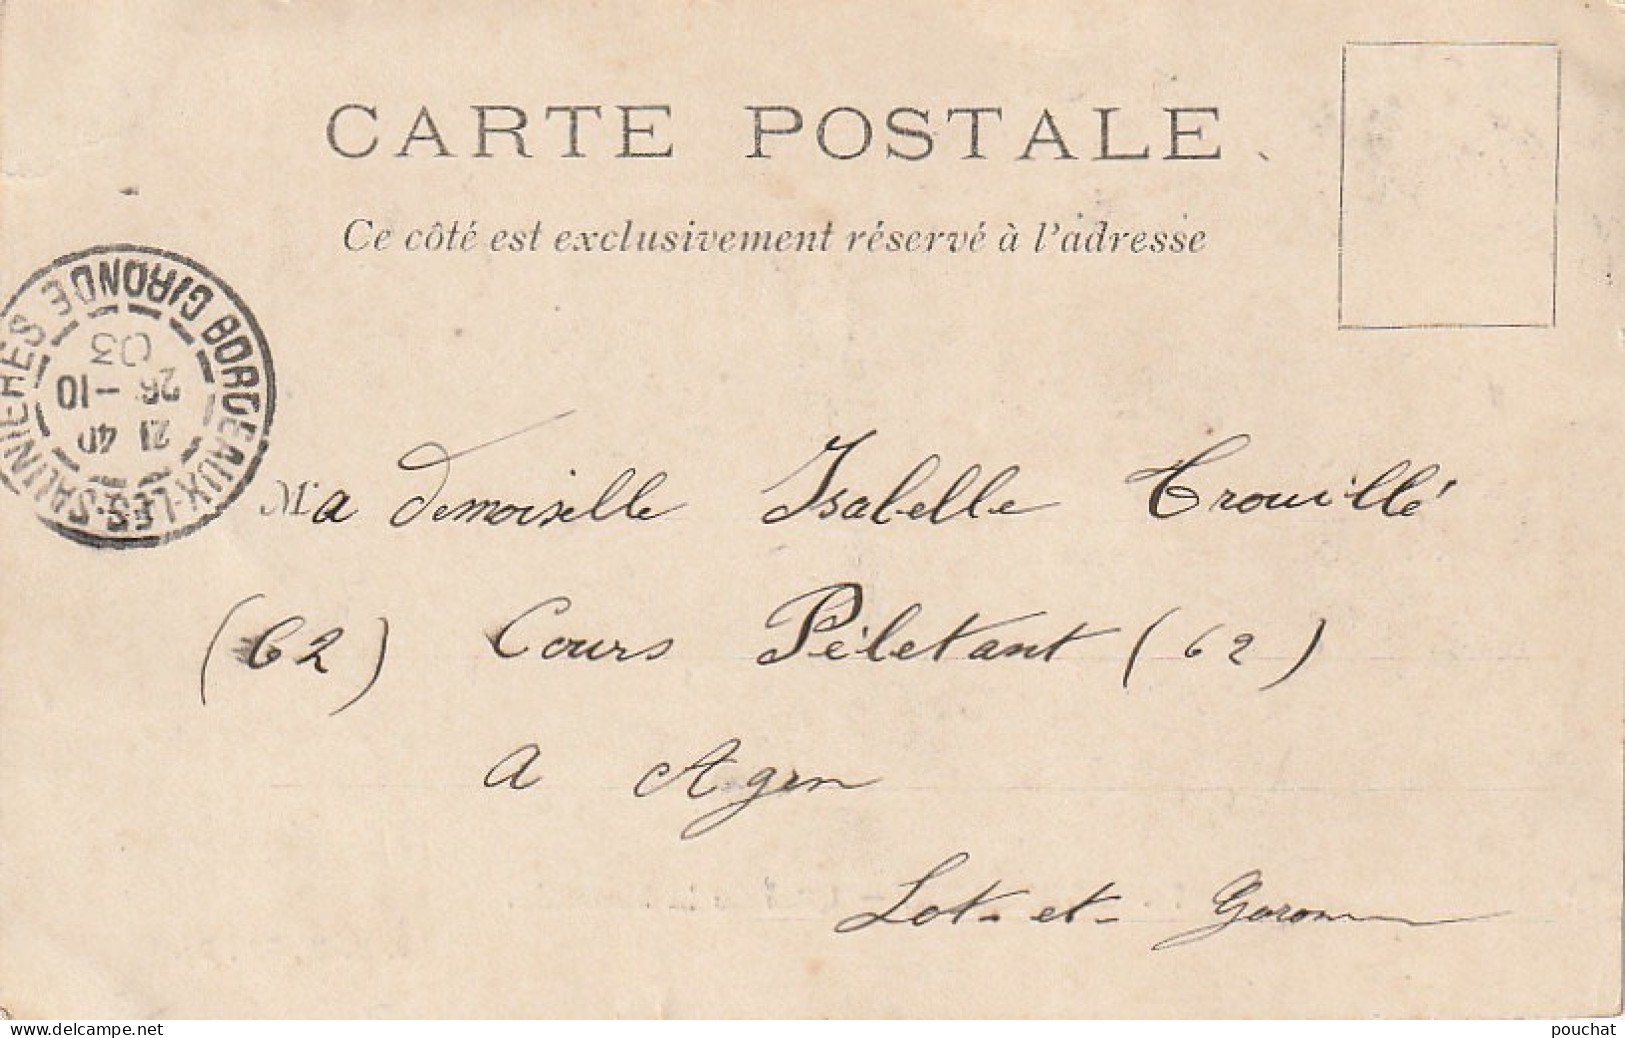 CARTE POSTALE
Ce côté est exclusivement réservé à l'adresse
BORDEAUX-LES-SALINIERES GIRONDE
21 40
26 -10
03
Ma demoiselle Isabelle Trouillé
(62) Cours Péletant (62)
a Agen
Lot-et-Garonne
www.delcampe.net
pouchat